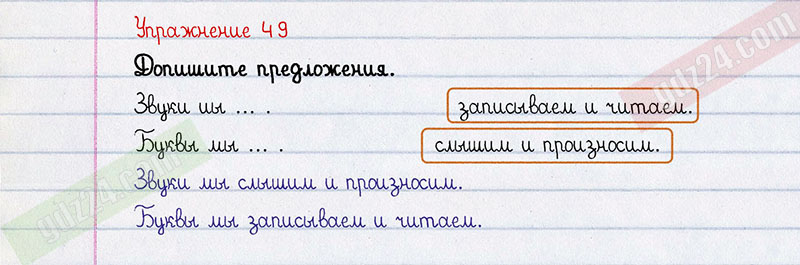 Упражнение 49
Допишите предложения.
Звуки шы ... . записываем и читаем.
Буквы мы ... . слышим и произносим.
Звуки мы слышим и произносим.
Буквы мы записываем и читаем.
gdz24.com
gdz24.com